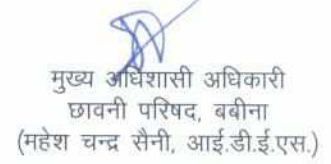 मुख्य अधिशासी अधिकारी
छावनी परिषद, बबीना
(महेश चन्द्र सैनी, आई.डी.ई.एस.)